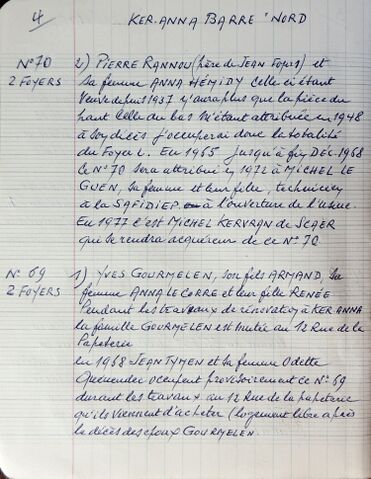 4
KER-ANNA BARRE NORD
N°70
2 FOYERS
2) PIERRE RANNOU (père de JEAN Fours) et
sa femme ANNA HÉMIDY celle ci étant
Veuve depuis 1937 n'aura plus que la pièce du
haut celle du bas m'étant attribuée en 1948
à soydices j'occuperai donc la totalité
du Foyer L. En 1965 jusqu'à fin Déc. 1968
Ce N°70 sera attribué en 1972 à MICHEL LE
GUEN, sa femme et leur fille, technicien
à la SAFIDIEP à l'ouverture de l'usine.
En 1977 c'est MICHEL KERVRAN de SCAER
qui se rendra acquéreur de ce N° 70
N° 69
2 FOYERS
1) YVES GOURMELEN, son fils ARMAND, sa
femme ANNA LE CORRE et leur fille RENÉE
Pendant les travaux de rénovation à KER ANNA
la famille GOURMELEN est mutée au 12 Rue de la
Papeterie
en 1968 JEAN TYMEN et sa femme Odette
Quemender occupent provisoirement ce N° 69
durant les travaux au 12 Rue de la papeterie
qu'ils viennent d'acheter (logement libre après
le décès des époux GOURMELEN